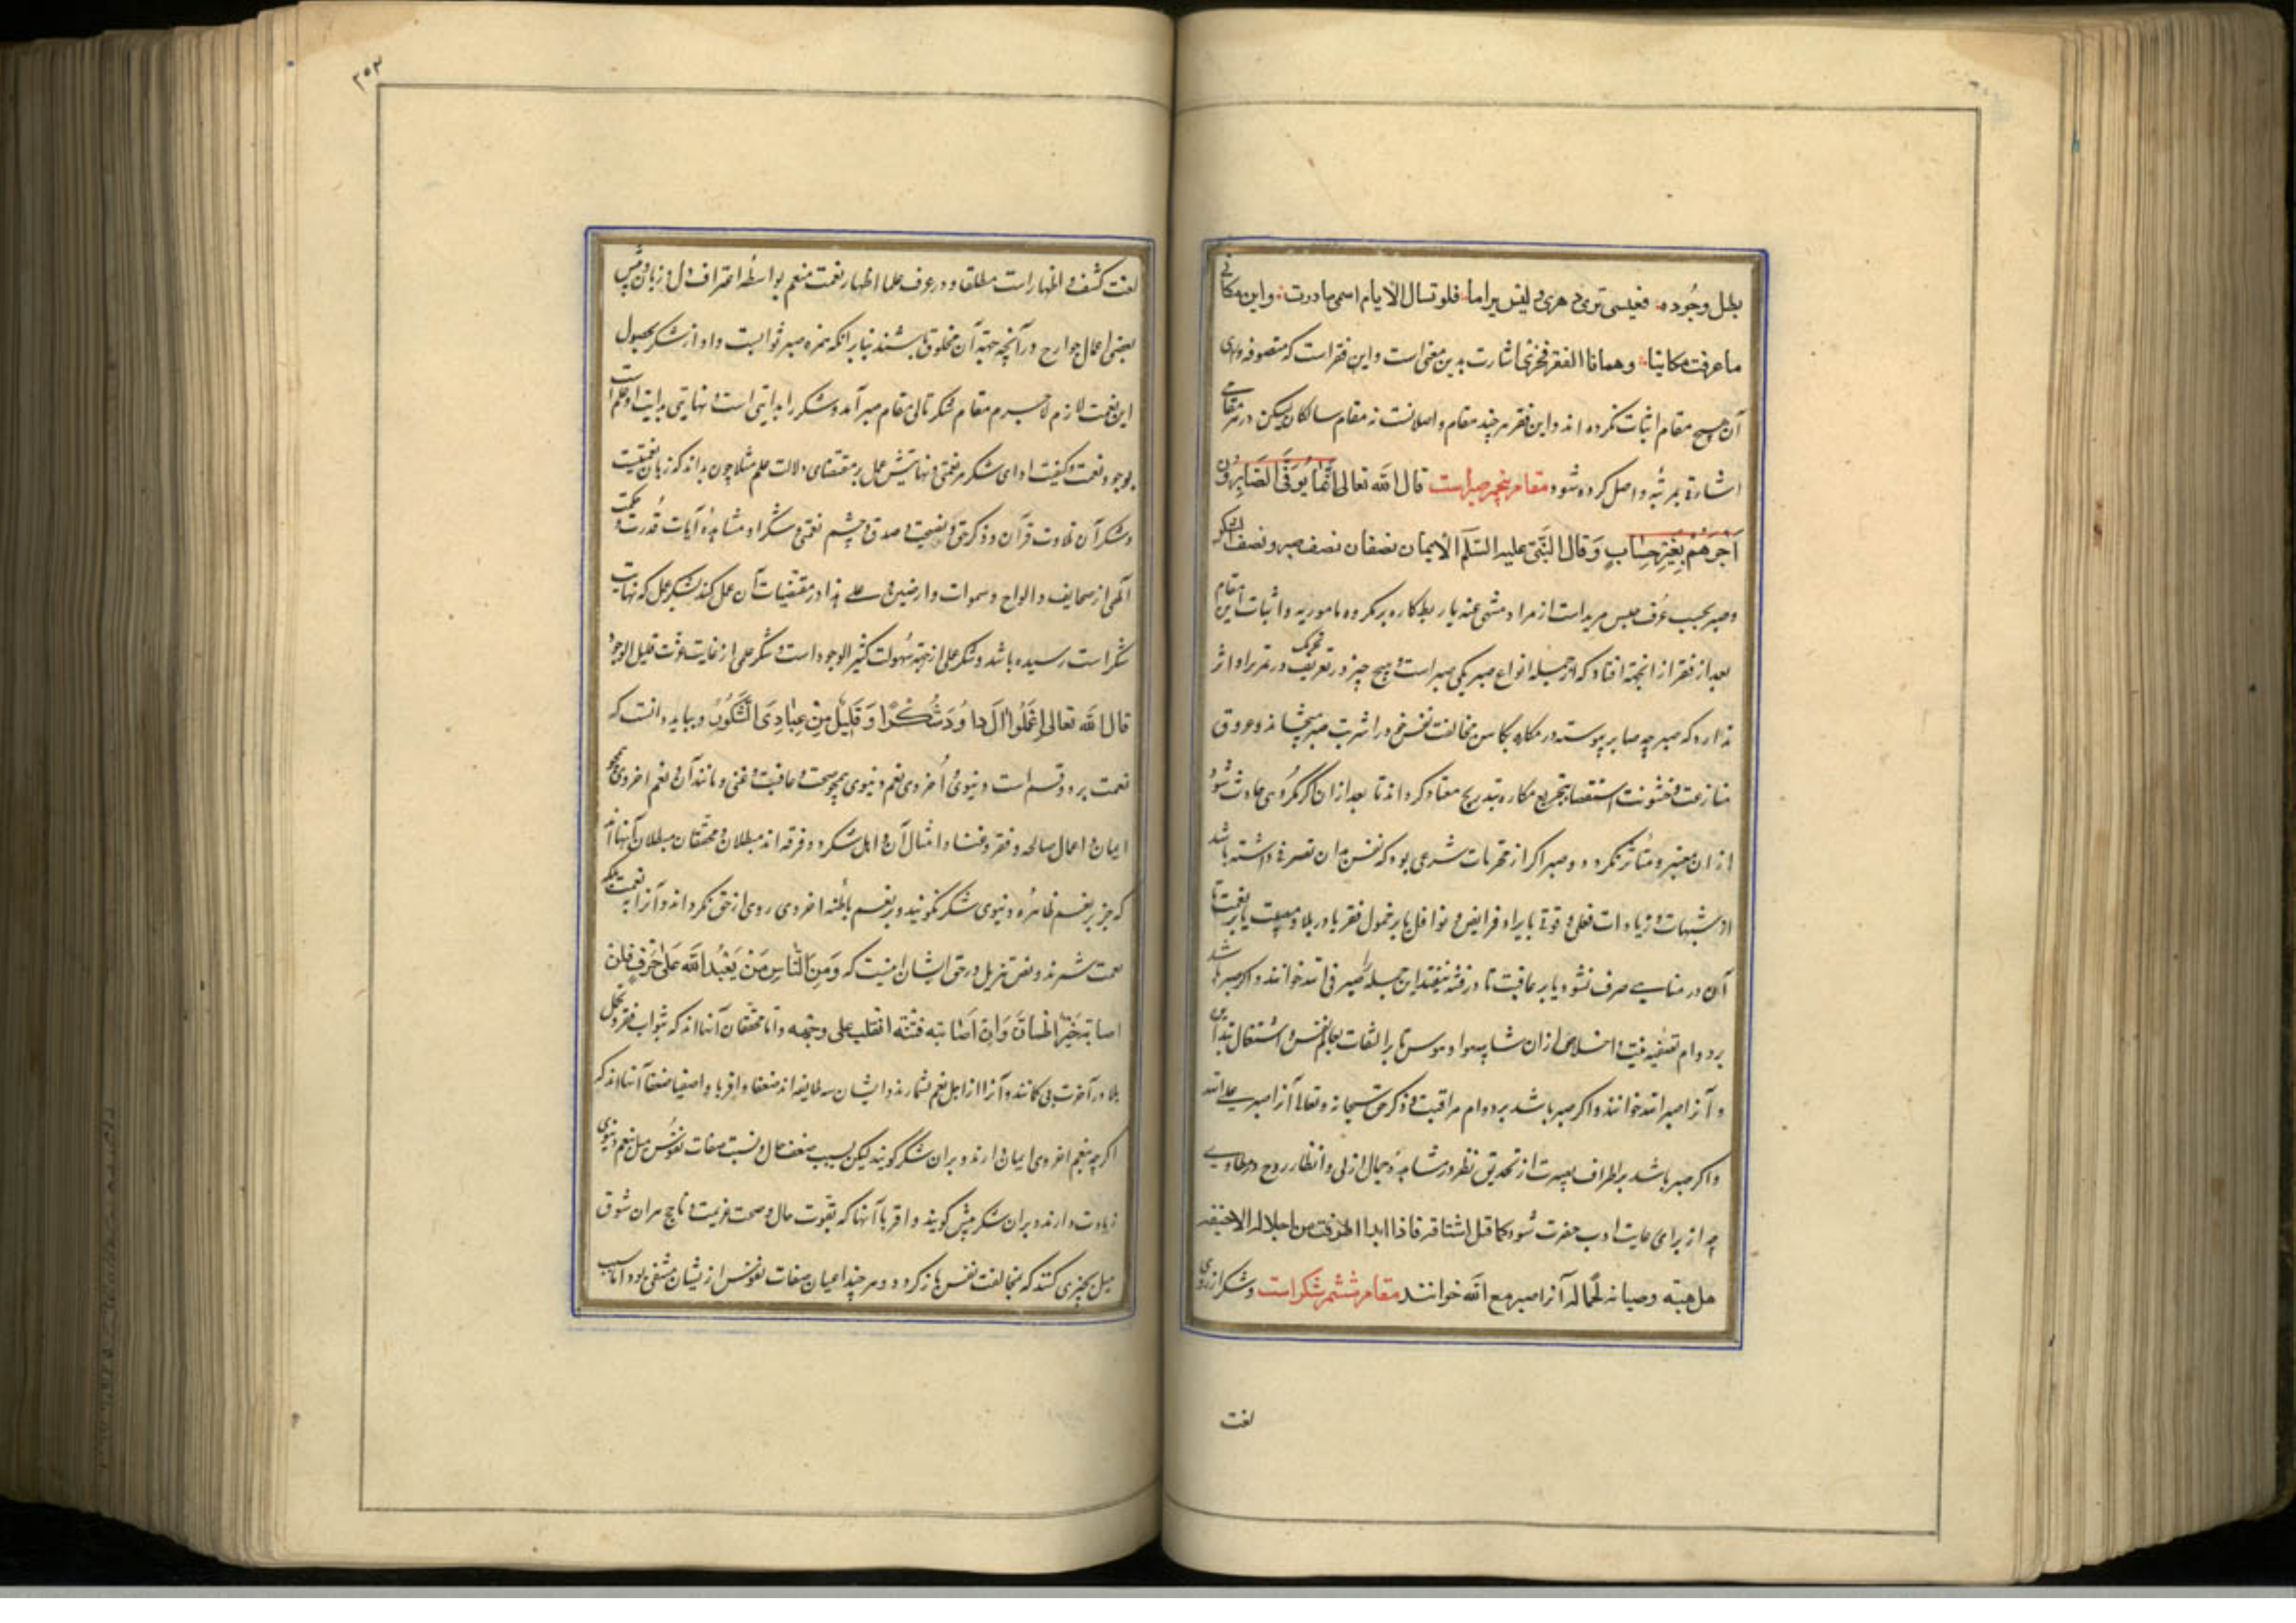 بظل وجوده فعینی تری دهری و لیس یرانی فلو تسال الایام اسمی ما درت و این مکانی
ما عرفت مکانیا و همانا الفقر فخری اشارت بدین معنی است و این فقر است که متصوفه ورای
آن هیچ مقام اثبات نکرده اند و این فقر هر چند مقام واصلانست نه مقام سالکان لیکن در هر مقامی
اشارة بمرتبه واصل کرده شود مقام پنجم صبر است قال الله تعالی انما یوفی الصابرون
اجرهم بغیر حساب و قال النبی علیه السلم الایمان نصفان نصف صبر و نصف شکر
و صبر بحسب عرف حبس مرید است از مراد منهی عنه یا ربط کاره بر مکروه مامور به و اثبات این مقام
بعد از فقر از انجهة افتاد که از جمله انواع صبر یکی صبر است بر فقر
ندارد که صبر چه صابر پیوسته در مکاره بکاس مخالفت نفس خود را شربت صبر میچشاند و عروق
منازعت و خشونت استقصا بتجریع مکاره بتدریج معتاد کرداند تا بعد ازان اگر مکروهی حادث شود
ازان متغیر و متاثر نکردد و صبر اکر از محرمات شرعی بود که نفس بدان تصرف داشته باشد
از شبهات و زیادات فعلی و قولی یا بر اداء فرایض و نوافل یا بر خمول فقر یا در بلا و مصیبت یا بر نعمت تا
آن در مناهی صرف نشود یا بر عافیت تا در فتنه نیفتد این جمله را صبر فی الله خوانند و اکر صبر باشد
بر دوام تصفیه نیت و اخلاص ازان شایبه هوا و هوس یا بر التفات بعالم نفس و اشتغال
و آنرا صبر لله خوانند و اکر صبر باشد بر دوام مراقبت و ذکر حق سبحانه و تعالی آنرا صبر علی الله
و اکر صبر باشد بر اطراف بصیرت از تحدیق نظر در مشاهدۀ جمال ازلی و انظار روح در مطاوی
چه از برای رعایت ادب حضرت شود کما قیل اشتاقه فاذا بدا اطرقت من اجلاله لا خیفة
بل هیبة و صیانة لجماله آنرا صبر مع الله خوانند مقام ششم شکر است و شکر از روی
لغت
۲۵۳
لغت کشف و اظهار است مطلقا و در عرف علما اظهار نعمت منعم بواسطۀ اعتراف دل و زبان و پس
بعضی اعمال جوارح در آنچه جهة آن مخلوق باشند بنابر انکه ثمره صبر ثوابست و ادا از شکر بحصول
این نعمت لازم لاجرم مقام شکر تالی مقام صبر آمد و شکر را بدایتی است و نهایتی بدایت او علم است
بوجود نعمت و کیفیت ادای شکر هر نعمتی و نهایتش عمل بر مقتضای دلالت علم مثلا چون بداند که زبان نعمتیست
و شکر آن تلاوت قرآن و ذکر حق و نصیحت و صدق و چشم نعمتی و شکر او مشاهدۀ آیات قدرت و حکمت
الهی از صحایف و الواح و سموات و ارضین و علی هذا در مقتضیات آن عمل کند بشکر عمل که نهایت
شکر است رسیده باشد و شکر علمی از جهة سهولت کثیر الوجود است و شکر عملی از غایت عزت قلیل الوجود
قال الله تعالی اعملوا ال داود شکرا و قلیل من عبادی الشکور و بباید دانست که
نعمت بر دو قسم است دنیوی و اخروی نعم دنیوی همچو صحت و عافیت و غنی و مانند آن و نعم اخروی همچو
ایمان و اعمال صالحه و فقر و عنا و امثال آن و اهل شکر دو فرقه اند مبطلان و محقان مبطلان آنها اند
که جز بر نعم ظاهره دنیوی شکر نکویند و بر نعم باطنه اخروی روی از حق بکردانند و آنرا نه نعمت بلکه
نقمت شمرند و نص تنزیل در حق ایشان اینست که و من الناس من یعبد الله علی حرف فان
اصابه خیر اطمان و ان اصابته فتنة انقلب علی وجهه و اما محقان آنها اند که بثواب فقر و تحمل
بلا در آخرت بی کمانند و آنرا از اجل نعم شمارند و ایشان سه طایفه اند ضعفا و اقویا و اصفیا ضعفا آنها اند که
اکر چه بنعم اخروی ایمان دارند و بران شکر کویند لیکن بسبب ضعف حال و نسبت صفات نفوس میل بنعم دنیوی
زیادت دارند و بران شکر بیش کویند و اقویا آنها که بقوت حال و صحت عزیمت
میل بچیزی کنند که بمخالفت نفس باز کردد و هر چند اعیان صفات نفوس ازیشان منتفی بود اما